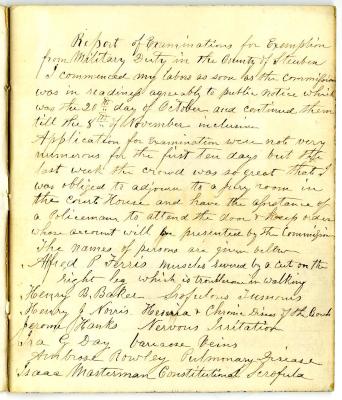 Report of Examinations for Exemption
from Military Duty in the County of Steuben
I commenced my labors as soon as the Commission
was in readiness agreeably to public notice which
was the 20th day of October and continued them
till the 8th of November inclusive
Application for Examination were not very
numerous for the first ten days but the
last week the crowd was so great that I
was obliged to adjourn to a jury room in
the Court House and have the assistance of
a Policeman to attend the door & keep order
whose account will be presented by the Commission
The names of persons are given below
Alfred P Ferris muscles severed by a cut on the
right leg which is troublesome in walking
Henry B. Baker Scrofulous Tumours
Henry J Norris Hernia & Chronic Disease of the
Jerome Hanks Nervous Irritation
Ira G Day Varicose Veins
Ambrose Rowley Pulmonary Disease
Isaac Masterman Constitutional Scrofula